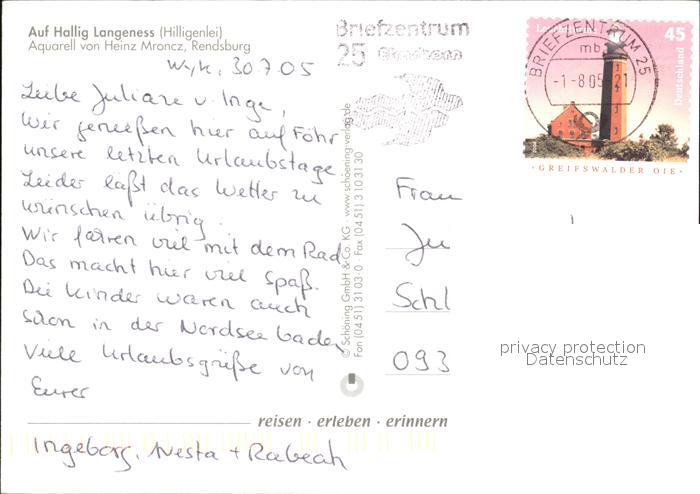 Auf Hallig Langeness (Hilligenlei)
Aquarell von Heinz Mroncz, Rendsburg
Wyk, 30.7.05
Liebe Juliane u. Inge,
Wir genießen hier auf Föhr
unsere letzten Urlaubstage.
Leider läßt das Wetter zu
wünschen übrig.
Wir fahren viel mit dem Rad.
Das macht hier viel Spaß.
Die Kinder waren auch
schon in der Nordsee baden.
Viele Urlaubsgrüße von
Eurer
Ingeborg, Nesta + Rabeah
reisen · erleben · erinnern
© Schöning GmbH & Co. KG · www.schoening-verlag.de
Fon (04 51) 3 10 3-0 · Fax (04 51) 3 10 31 30
Briefzentrum
25
BRIEFZENTRUM 25
mb
-1.-8.05-21
45
Deutschland
· GREIFSWALDER OIE ·
Frau
Ju
Schl
093
privacy protection
Datenschutz